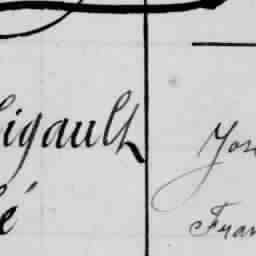 igault
é
Jos
Fran